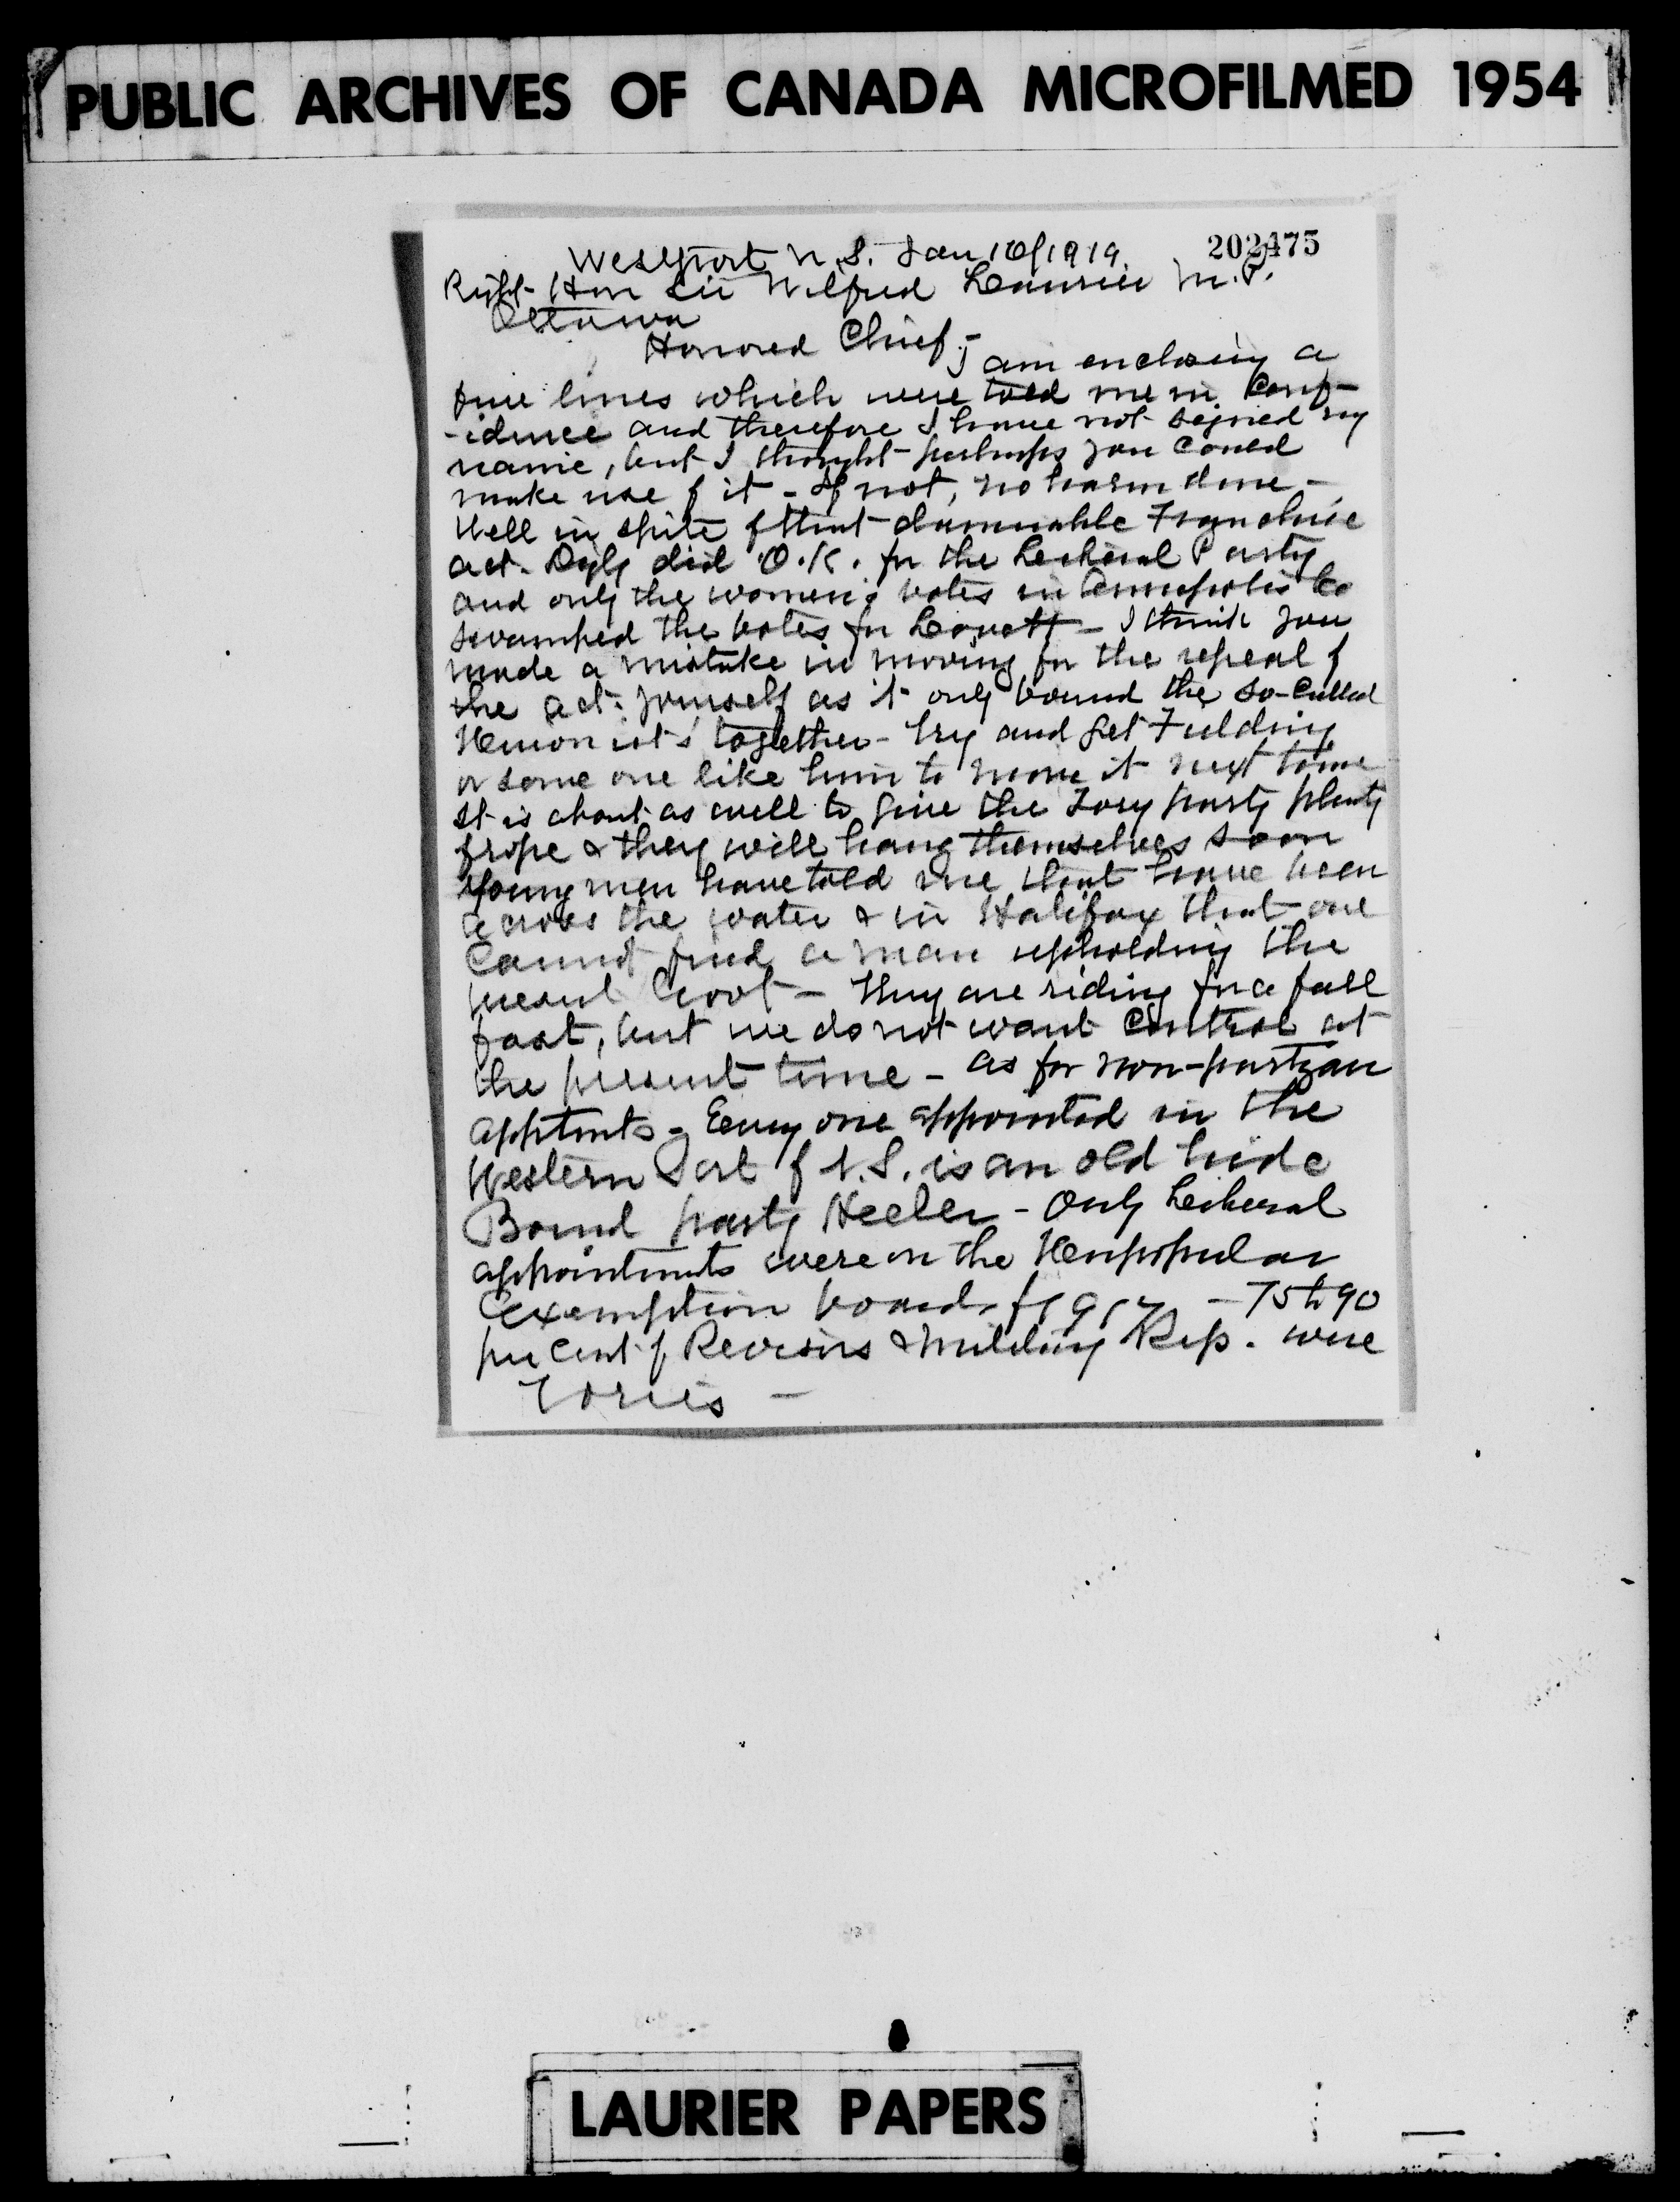 PUBLIC ARCHIVES OF CANADA MICROFILMED 1954
202475
Westport N.S. Jan 16/1919
Right Hon Sir Wilfred Laurier M.P.
Ottawa
Honored Chief:-
I am enclosing a
few lines which were told me in Conf-
-idence and therefore I have not signed my
name, but I thought perhaps you could
make use of it - If not, no harm done -
Well in spite of that damnable Franchise
act. Digby did O.K. for the Liberal Party
and only the women's votes in Annapolis Co
swamped the votes for Lovett - I think you
made a mistake in moving for the repeal of
the act. yourself as it only bound the so-called
Unionist's together - Try and get Fielding
or some one like him to move it next time
It is about as well to give the Tory party plenty
of rope & they will hang themselves soon
Young men have told me that have been
across the water & in Halifax that one
Cannot find a man upholding the
present Govt - They are riding for a fall
fast, but we do not want control at
the present time - as for non-partizan
apptmts - Every one appointed in the
Western Part of N.S. is an old hide
Bound party Heeler - Only Liberal
appointments were on the Unpopular
Exemption boards of 1917 - 75 to 90
per cent of Revisors & military Rep. were
Tories -
LAURIER PAPERS